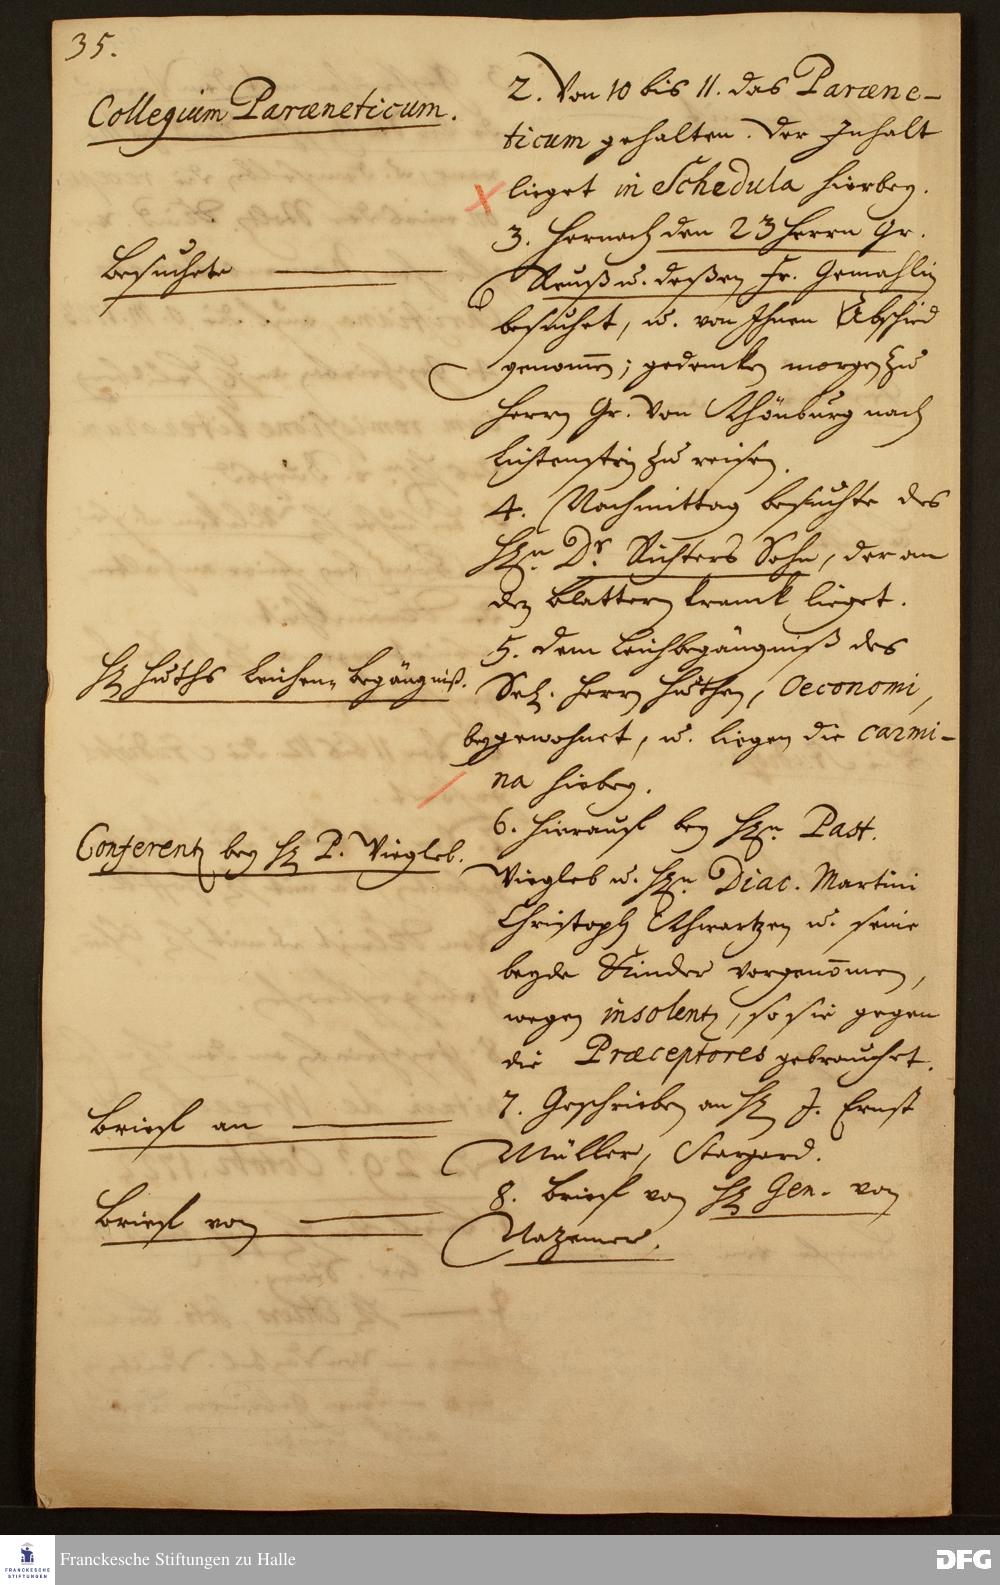 35.
Collegium Paræneticum.
2. Von 10 bis 11. das Paræne-
ticum gehalten. Der Inhalt
lieget in Schedula hierbey.
Besuchete
3. Hernach den 23 Herrn Gr.
Reuß u. deßen Fr. Gemahlin
besuchet, u. von Ihnen Abschied
genommen; gedencken morgen zu
Herrn Gr. von Schönburg nach
Lichtenstein zu reisen.
4. Nachmittag besuchte des
Hn. Dr. Richters Sohn, der an
den Blattern kranck lieget.
H. Huths Leichen-Begängniß.
5. dem Leichbegängniß des
Sel. Herrn Huthen, Oeconomi,
beygewohnet, u. liegen die carmi-
na hiebey.
Conferentz bey H. P. Viegleb.
6. Hierauf bey Hn. Past.
Viegleb u. Hn. Diac. Martini
Christoph Schwartzen u. seine
beyde Kinder vorgenommen,
wegen insolentz, so sie gegen
die Præceptores gebrauchet.
Brief an
7. Geschrieben an H. J. Ernst
Müller, Stargard.
Brief von
8. Brief von H. Gen. von
Nazemer.
Franckesche Stiftungen zu Halle
FRANCKESCHE
STIFTUNGEN
DFG